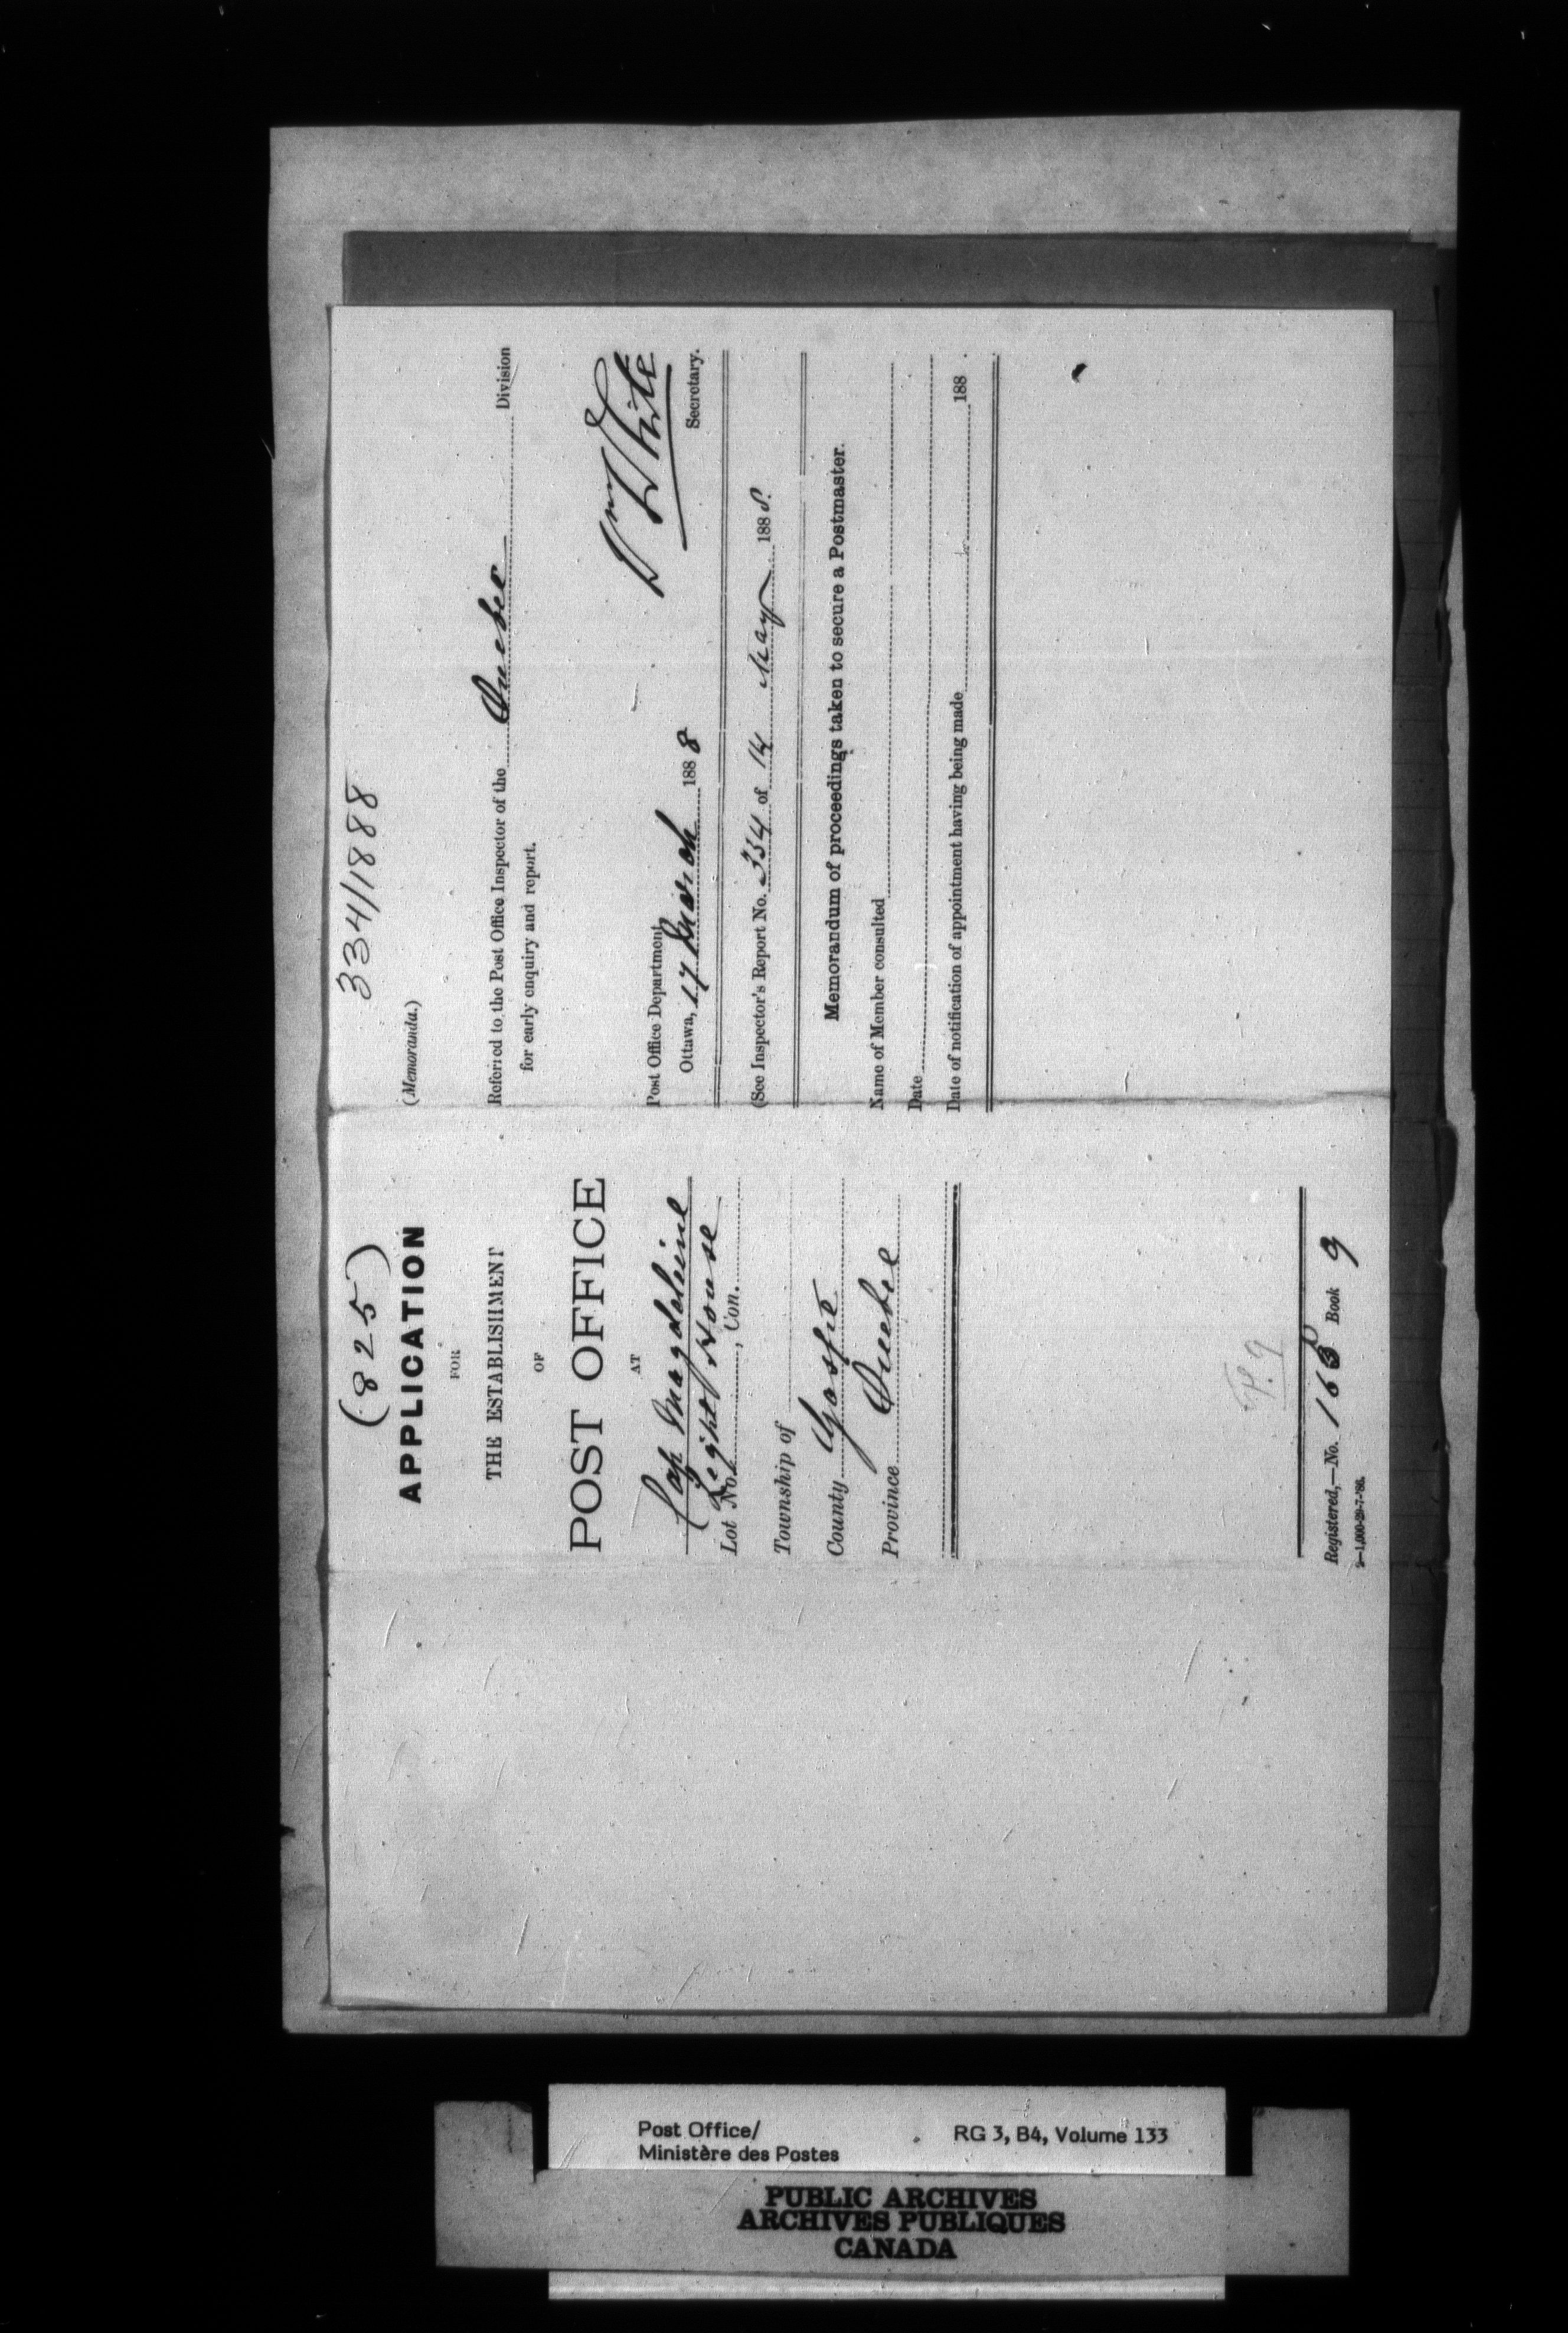 (825)
APPLICATION
FOR
THE ESTABLISHMENT
OF
POST OFFICE
AT
Cap Magdeleine
Light House
Lot No. , Con.
Township of
County Gaspé
Province Quebec
P. 9
Registered,—No. 168 Book 9
2—1,000-29-7-'86.
334/1888
(Memoranda.)
Referred to the Post Office Inspector of the Quebec Division
for early enquiry and report.
Wm White
Secretary.
Post Office Department,
Ottawa, 17 March 1888
(See Inspector's Report No. 334 of 14 May 1888.
Memorandum of proceedings taken to secure a Postmaster.
Name of Member consulted
Date
Date of notification of appointment having being made 188 .
Post Office/
Ministère des Postes
RG 3, B4, Volume 133
PUBLIC ARCHIVES
ARCHIVES PUBLIQUES
CANADA